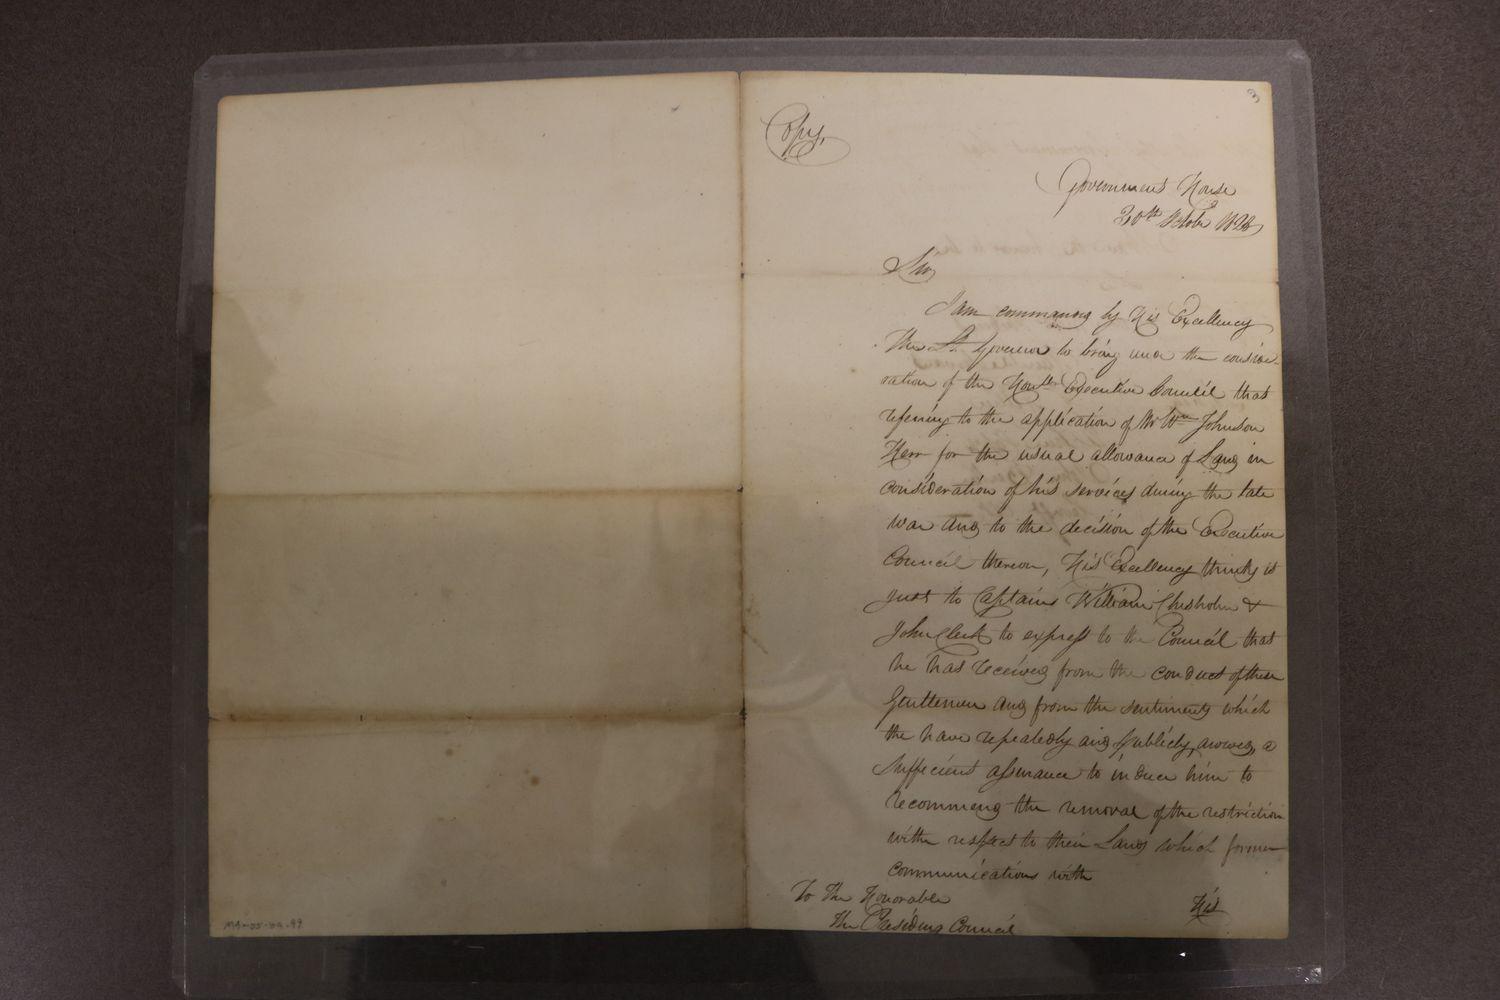 3
Copy,
Government House
20th October 1828
Sir,
I am commanded by His Excellency
The Lt Governor to bring under the conside-
ration of the Honble Executive Council that
refering to the application of Mr Wm Johnson
Kerr for the usual allowance of Land in
consideration of his services during the late
war and to the decision of the Executive
Council thereon, His Excellency thinks it
just to Captains William Chisholm &
John Clark to express to the Council that
he has received from the conduct of these
Gentlemen and from the sentiments which
the have repeatedly and publicly avowed, a
sufficient assurance to induce him to
recommend the removal of the restriction
with respect to their Lands which former
communications with
His
To The Honorable
The Presiding Council
MA-05-09-99